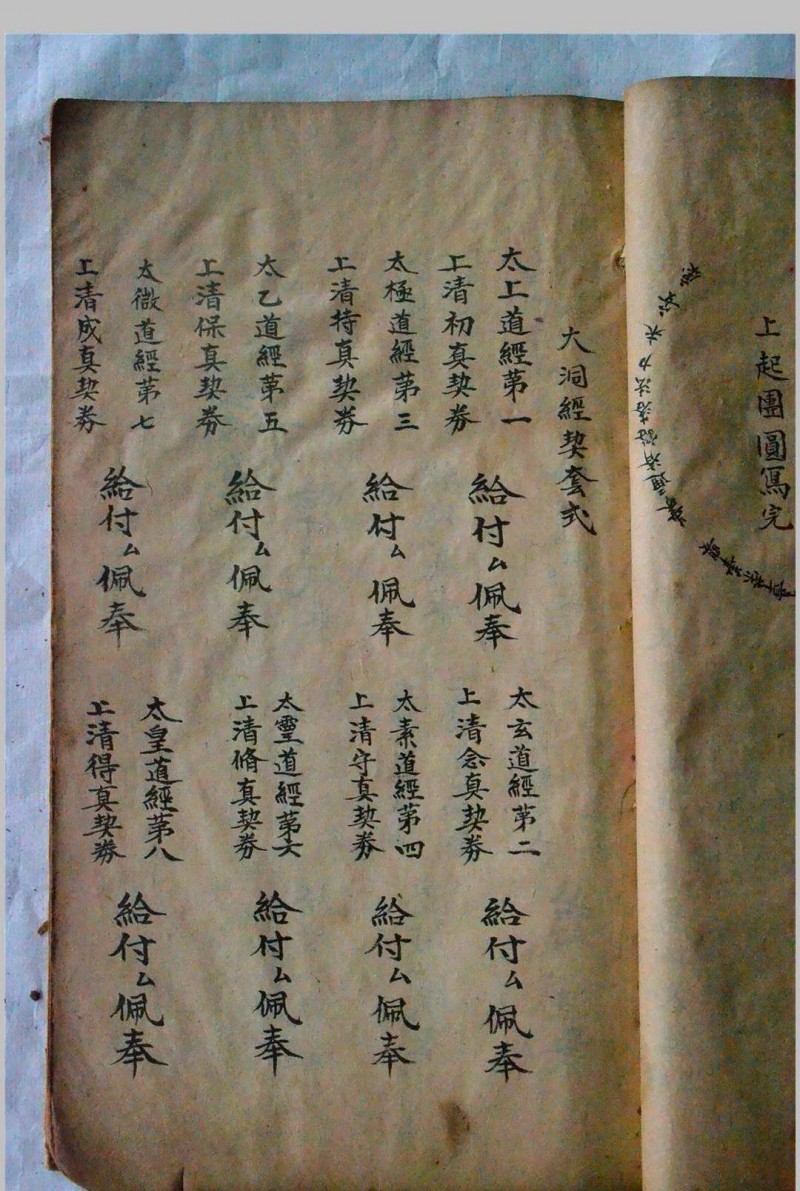 上起團圓寫完
大洞經契套式
太上道經第一
上清初真契券
給付ム佩奉
太玄道經第二
上清念真契券
給付ム佩奉
太極道經第三
上清持真契券
給付ム佩奉
太素道經第四
上清守真契券
給付ム佩奉
太乙道經第五
上清保真契券
給付ム佩奉
太靈道經第六
上清脩真契券
給付ム佩奉
太微道經第七
上清成真契券
給付ム佩奉
太皇道經第八
上清得真契券
給付ム佩奉